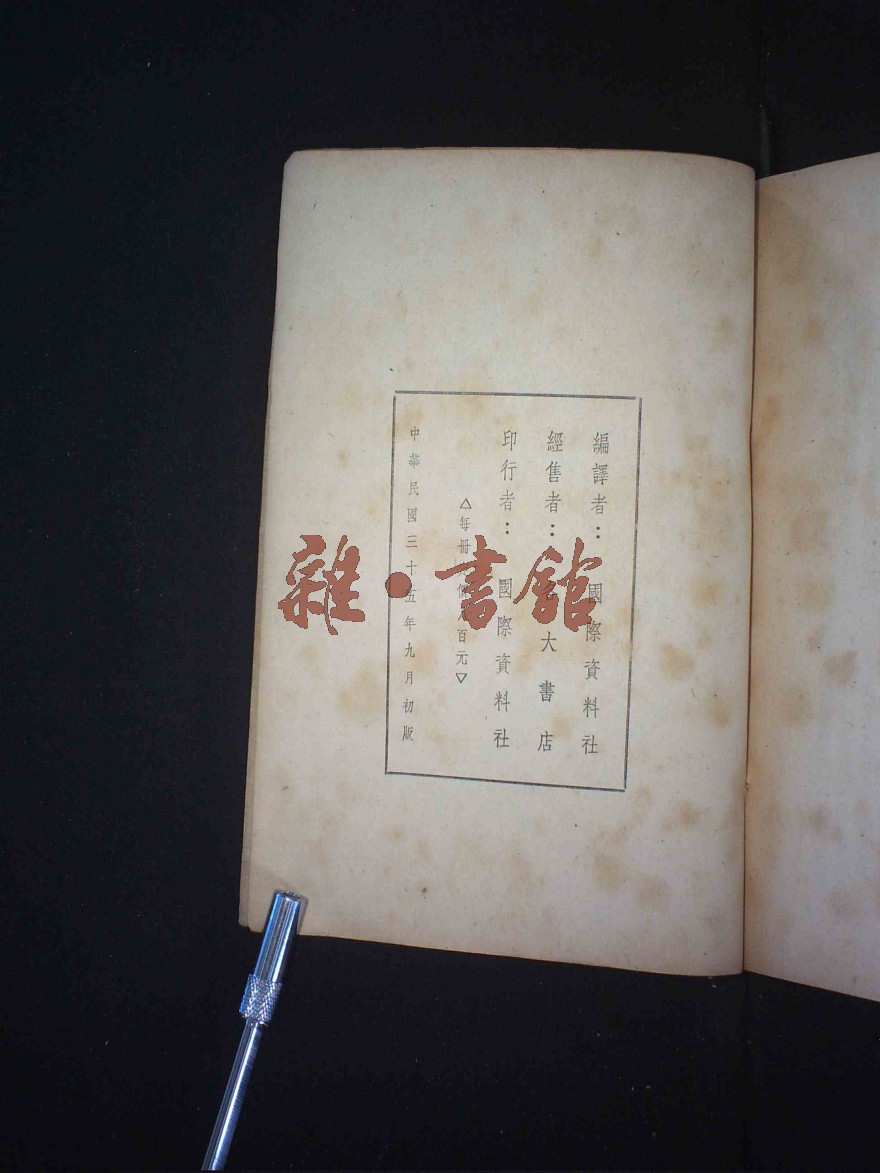 編譯者：國際資料社
經售者：大書店
印行者：國際資料社
△每冊百元▽
中華民國三十五年九月初版
雜·書館